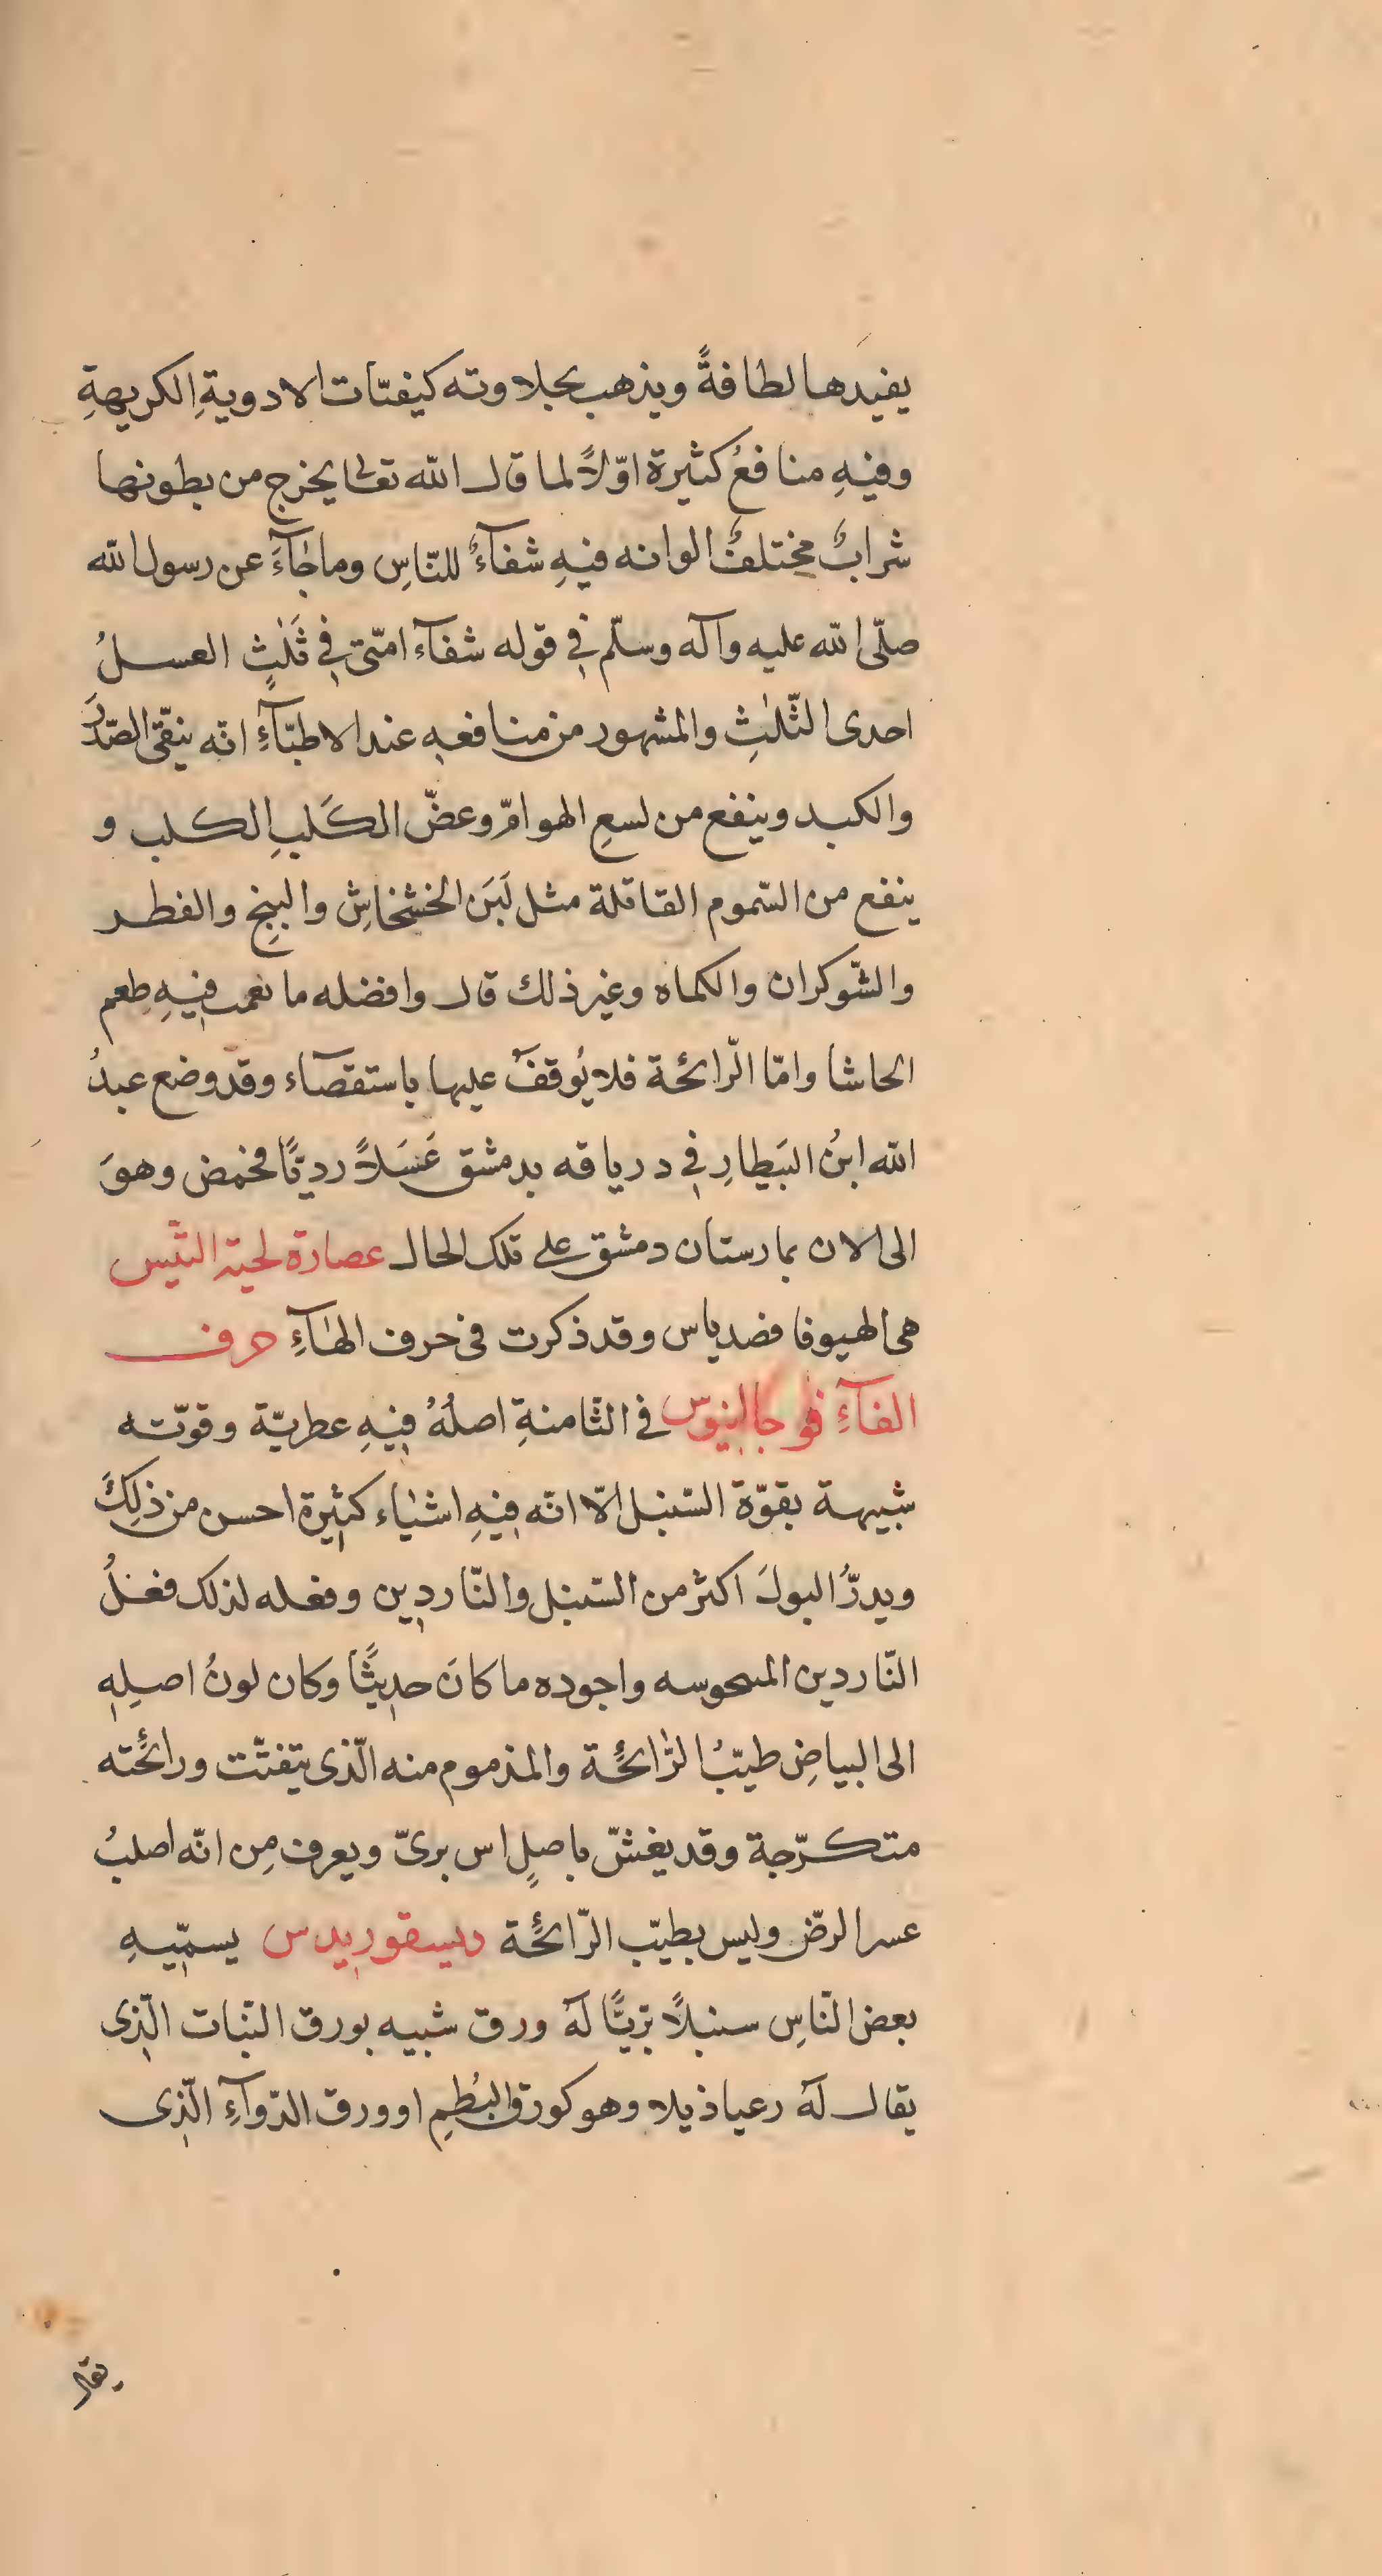 يفيدها لطافةً ويذهب بحلاوته كيفيّات الادويةِ الكريهةِ
وفيهِ منافعُ كثيرة اوّلاً لما قال الله تعالى يخرج من بطونها
شرابٌ مختلفٌ الوانه فيهِ شفآءٌ للنّاسِ وما جٰآءَ عن رسول الله
صلّى الله عليه وآله وسلّم في قوله شفآء امّتى في ثَلٰثٍ العسلُ
احدى الثّلٰثِ والمشهور من منافعهِ عند الاطبّآءِ انّه ينقّى الصّدَرَ
والكبد وينفع من لسعِ الهوامّ وعضّ الكَلبِ الكلب و
ينفع من السّموم القاتلة مثل لَبَن الخشخاشِ والبنجِ والفطر
والشّوكران والكماه وغير ذلك قال وافضله ما نعمب فيهِ طعم
الحاشا وامّا الرّائحة فلا يُوقفَ عليها باستقصآء وقد وضع عبدُ
الله ابنُ البَيطارِ في درياقه بدمشق عَسَلاً رديًّا فحمض وهوَ
الى الان بمارستان دمشق على تلك الحال عصارة لحية التّيس
هى الهيوفا فضدياس وقد ذكرت في حرف الهٰآءِ حرف
الفآءِ فو جالينوس في الثّامنةِ اصلُهُ فيهِ عطريّة وقوّته
شبيهة بقوّة السّنبل الّا انّه فيهِ اشيٰاء كثيرة احسن من ذلِكَ
ويدرُّ البولَ اكثر من السّنبل والنّاردين وفعله لذلك فعلُ
النّاردين المىحوسه واجوده ما كانَ حديثًا وكان لونُ اصلِهِ
الى البياضِ طيّبُ الرّائحة والمذموم منه الّذى يتفتّت ورائحته
متكرّجة وقد يغشّ باصلِ اس برىّ ويعرف مِن انّه اصلبُ
عسر الرضّ وليس بطيّب الرّائحة ديسقوريدس يسمّيهِ
بعض النّاسِ سنبلاً برّيًّا لَهُ ورق شبيه بورق النّبات الّذى
يقال لَهُ رعياذيلا وهو كورق البُطمِ او ورق الدّوآءِ الّذى
يقال